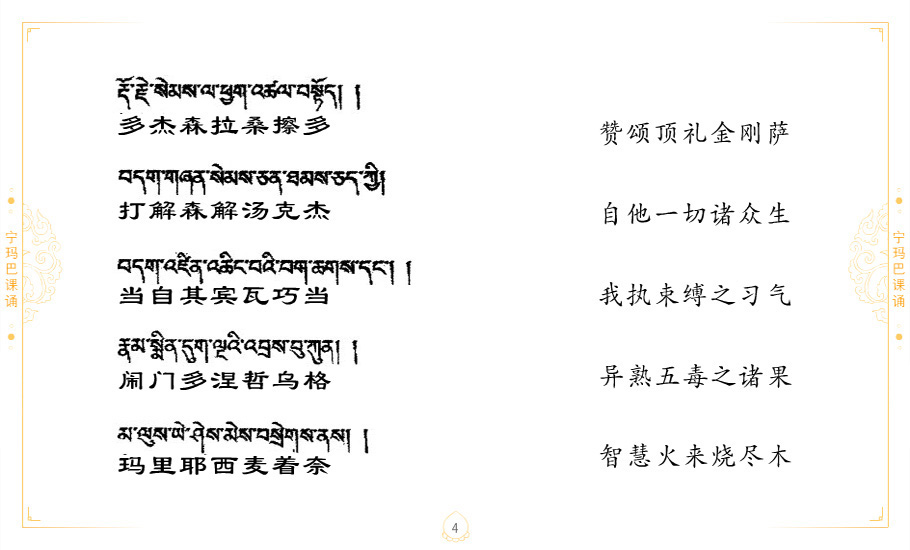 རྡོ་རྗེ་སེམས་ལ་ཕྱག་འཚལ་བསྟོད། །
多杰森拉桑擦多
赞颂顶礼金刚萨
བདག་གཞན་སེམས་ཅན་ཐམས་ཅད་ཀྱི།
打解森解汤克杰
自他一切诸众生
བདག་འཛིན་འཆིང་བའི་བག་ཆགས་དང་། །
当自其宾瓦巧当
我执束缚之习气
རྣམ་སྨིན་དུག་ལྔའི་འབྲས་བུ་ཀུན། །
闹门多涅哲乌格
异熟五毒之诸果
མ་ལུས་ཡེ་ཤེས་མེས་བསྲེགས་ནས། །
玛里耶西麦着奈
智慧火来烧尽木
宁玛巴课诵
宁玛巴课诵
4